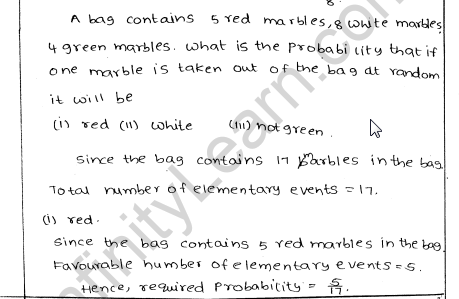 A bag contains 5 red marbles, 8 white marbles,
4 green marbles. what is the probability that if
one marble is taken out of the bag at random
it will be
(i) red (ii) white (iii) not green.
Since the bag contains 17 marbles in the bag
Total number of elementary events = 17.
(i) red.
Since the bag contains 5 red marbles in the bag,
Favourable number of elementary events = 5.
Hence, required probability = 5/17.